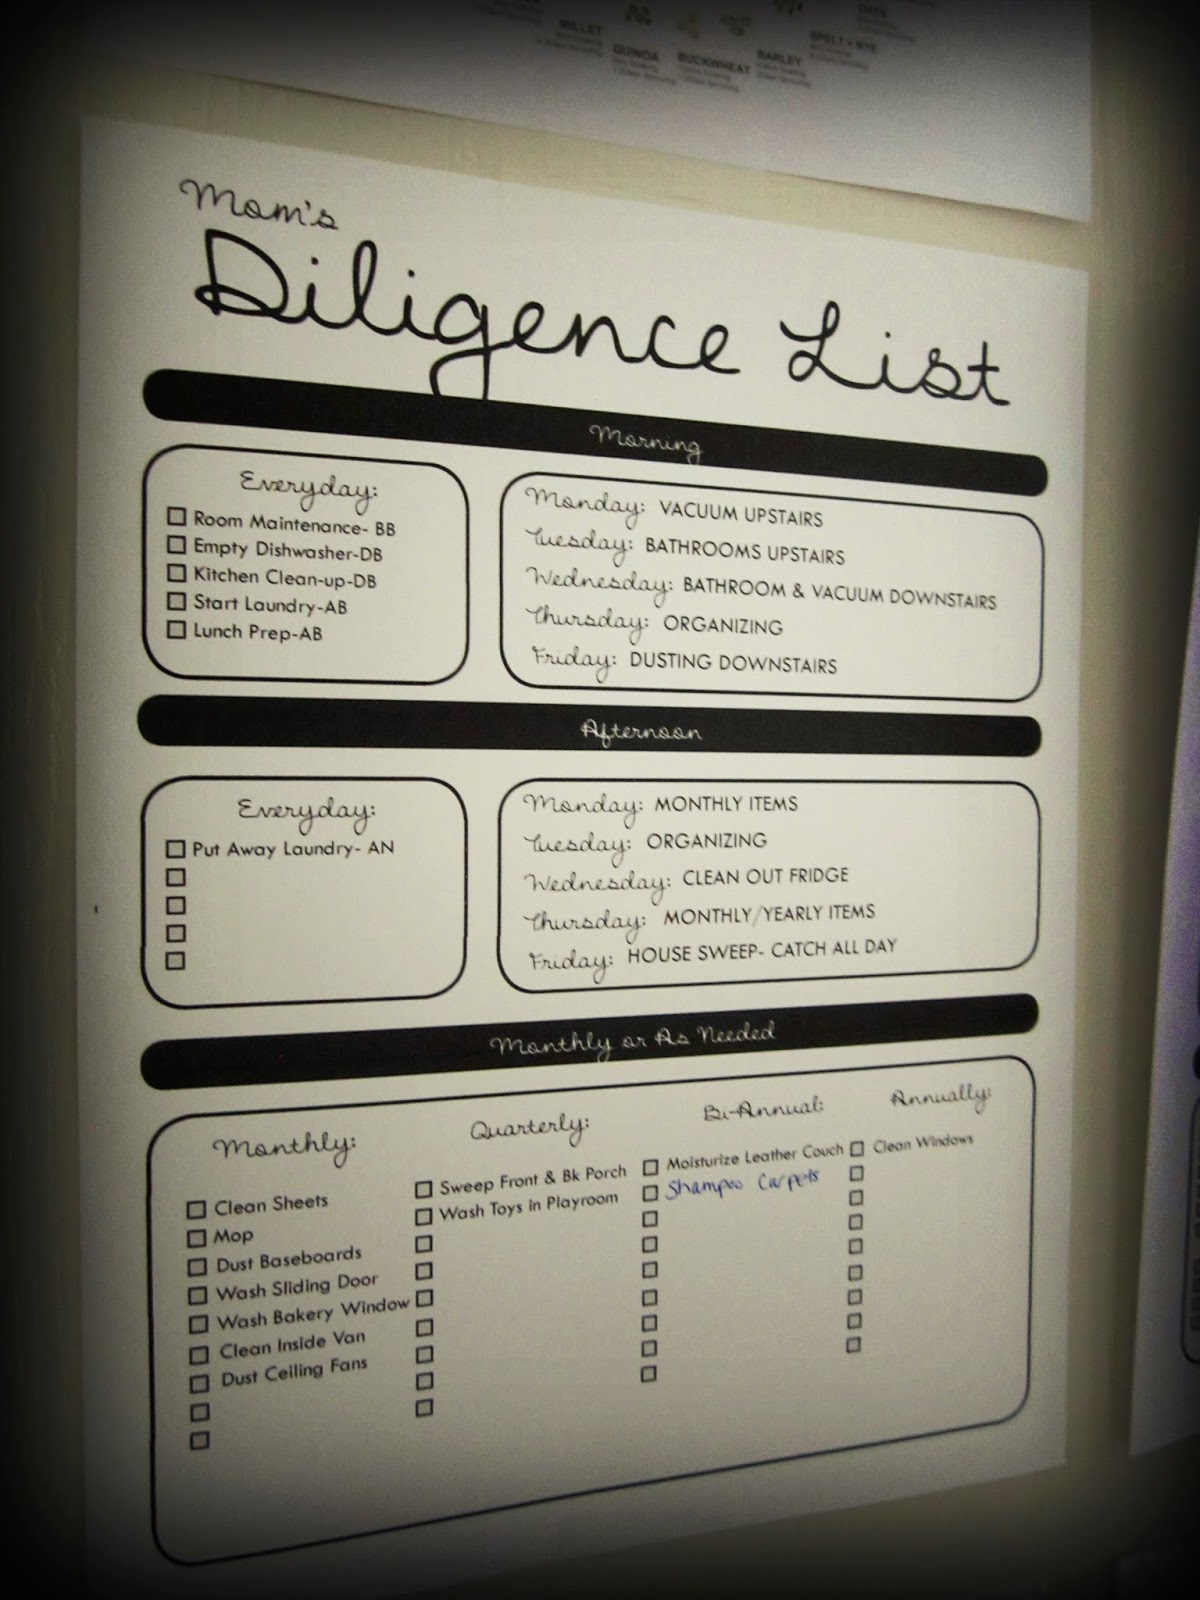 MILLET
QUINOA
BUCKWHEAT
BARLEY
SPELT • RYE
OATS
Mom's
Diligence List
Morning
Everyday:
Room Maintenance- BB
Empty Dishwasher-DB
Kitchen Clean-up-DB
Start Laundry-AB
Lunch Prep-AB
Monday: VACUUM UPSTAIRS
Tuesday: BATHROOMS UPSTAIRS
Wednesday: BATHROOM & VACUUM DOWNSTAIRS
Thursday: ORGANIZING
Friday: DUSTING DOWNSTAIRS
Afternoon
Everyday:
Put Away Laundry- AN
Monday: MONTHLY ITEMS
Tuesday: ORGANIZING
Wednesday: CLEAN OUT FRIDGE
Thursday: MONTHLY/YEARLY ITEMS
Friday: HOUSE SWEEP- CATCH ALL DAY
Monthly or As Needed
Monthly:
Clean Sheets
Mop
Dust Baseboards
Wash Sliding Door
Wash Bakery Window
Clean Inside Van
Dust Ceiling Fans
Quarterly:
Sweep Front & Bk Porch
Wash Toys in Playroom
Bi-Annual:
Moisturize Leather Couch
Shampoo Carpets
Annually:
Clean Windows